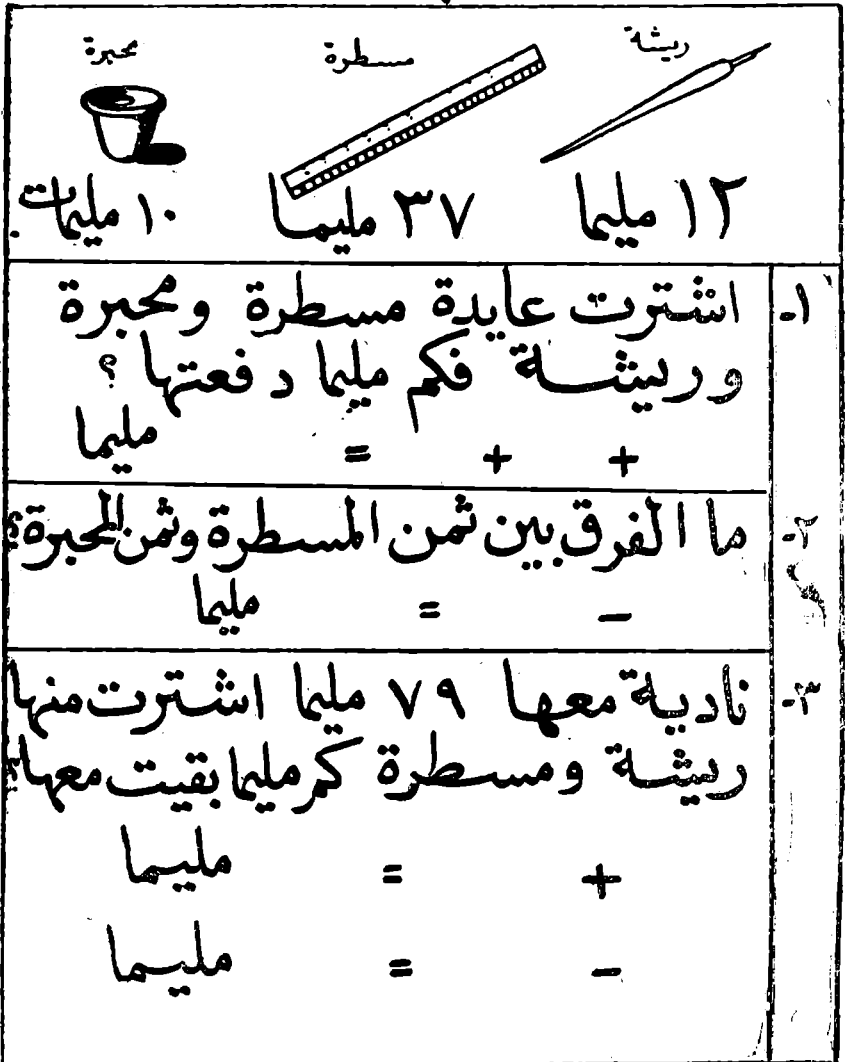 ريشة مسطرة محبرة
١٢ مليما ٣٧ مليما ١٠ مليمات
١- اشترت عايدة مسطرة ومحبرة
وريشة فكم مليما دفعتها ؟
+ + = مليما
٢- ما الفرق بين ثمن المسطرة وثمن المحبرة؟
- = مليما
٣- نادية معها ٧٩ مليما اشترت منها
ريشة ومسطرة كم مليما بقيت معها؟
+ = مليما
- = مليما